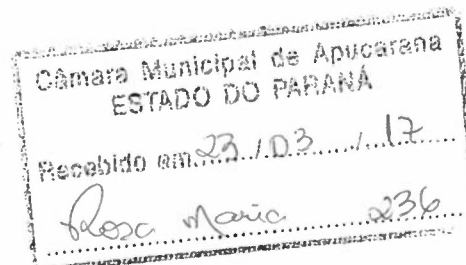 Câmara Municipal de Apucarana
ESTADO DO PARANÁ
Recebido em 23/03/17
Rosa Maria 236